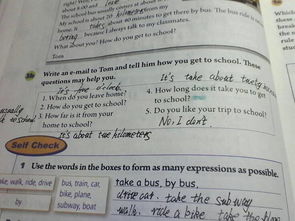 right? Well
about 8:00 and
The school bus usually comes at about
My school is about 20 kilometers from my
home. It takes about 40 minutes to get there by bus. The bus ride is
boring because I always talk to my classmates.
What about you? How do you get to school?
Tom
3b Write an e-mail to Tom and tell him how you get to school. These
questions may help you.
It's take about twety
It's five o'clock
1. When do you leave home?
4. How long does it take you to get
2. How do you get to school?
to school?
usually
3. How far is it from your
5. Do you like your trip to school?
home to school?
No, I don't
It's about two kilometers
Self Check
1 Use the words in the boxes to form as many expressions as possible.
take, walk, ride, drive
bus, train, car,
take a bus, by bus,
bike, plane,
drive car. take the subway
by
subway, boat
walk. ride a bike take the